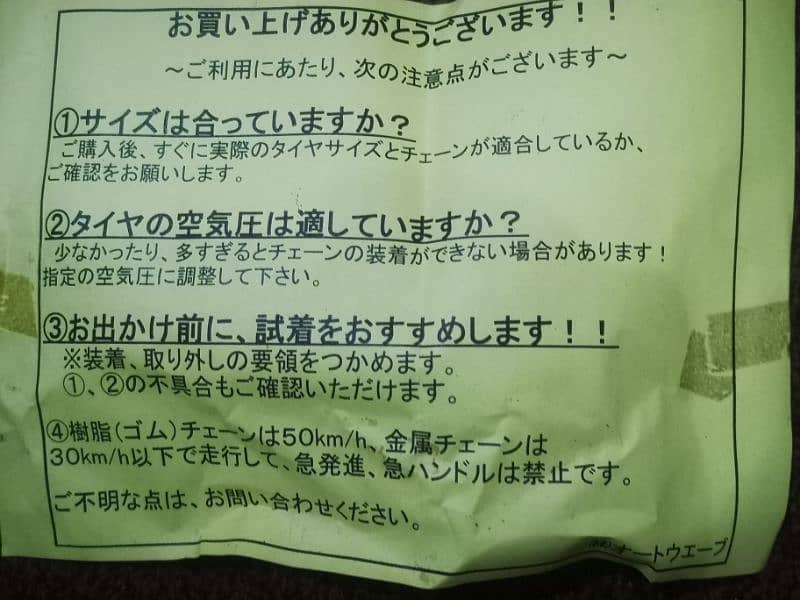 お買い上げありがとうございます！！
～ご利用にあたり、次の注意点がございます～
①サイズは合っていますか？
ご購入後、すぐに実際のタイヤサイズとチェーンが適合しているか、
ご確認をお願いします。
②タイヤの空気圧は適していますか？
少なかったり、多すぎるとチェーンの装着ができない場合があります！
指定の空気圧に調整して下さい。
③お出かけ前に、試着をおすすめします！！
※装着、取り外しの要領をつかめます。
①、②の不具合もご確認いただけます。
④樹脂（ゴム）チェーンは50km/h、金属チェーンは
30km/h以下で走行して、急発進、急ハンドルは禁止です。
ご不明な点は、お問い合わせください。
㈱オートウエーブ